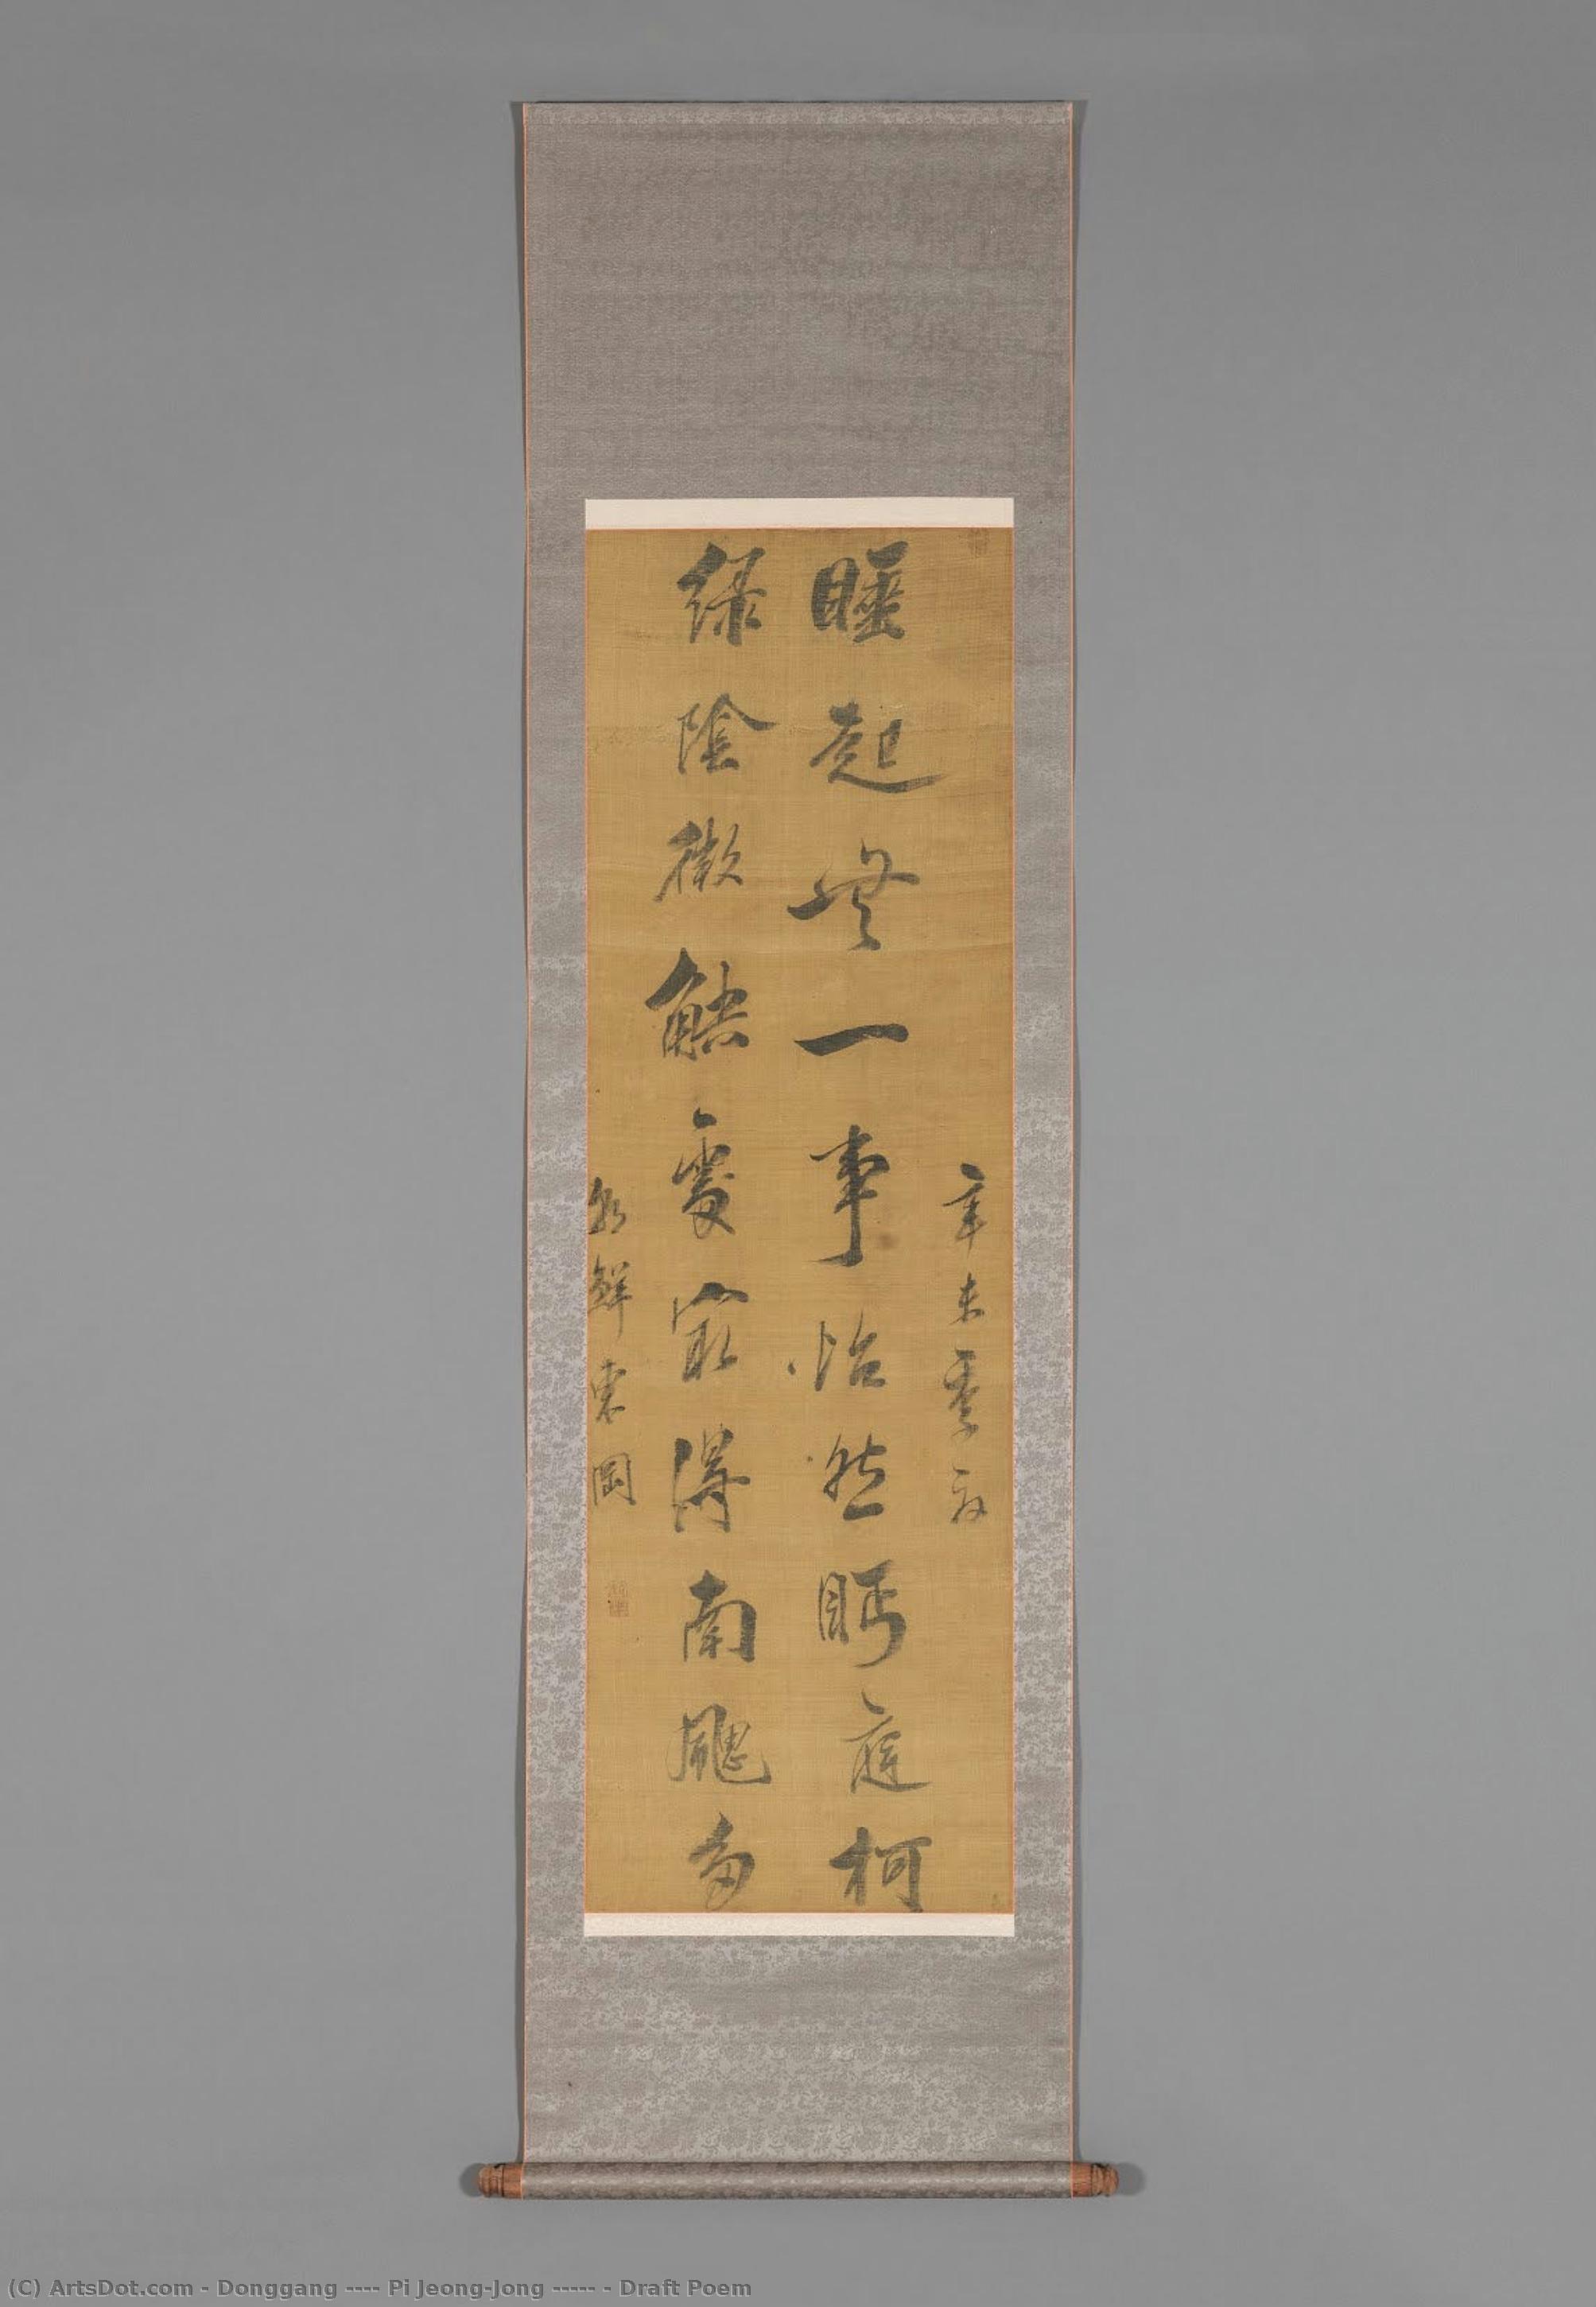 辛未季
睡起無一事怡然眄庭柯
綠陰微缺處最得南颸多
朝鮮東岡
(C) ArtsDot.com - Donggang ---- Pi Jeong-Jong ----- - Draft Poem